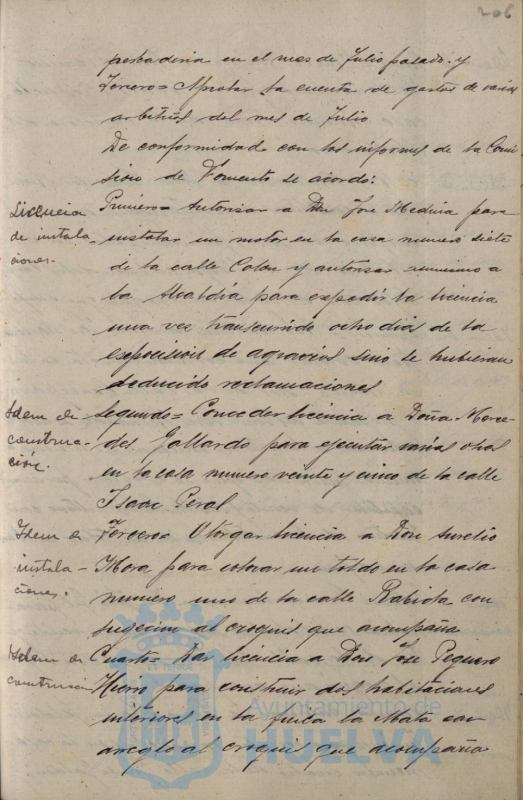 206
pescaderia en el mes de Julio pasado. y
Tercero= Aprobar la cuenta de gastos de varios
arbitrios del mes de Julio
De conformidad con los informes de la Comi
sion de Fomento se acordo:
Licencia
de instala-
ciones.
Primero= Autorizar a Don Jose Medina para
instalar un motor en la casa numero siete
de la calle Colon y autorizar asimismo a
la Alcaldía para expedir la licencia
una vez transcurrido ocho dias de la
exposicion de agravios sino se hubieran
deducido reclamaciones
Idem de
construc-
ción.
Segundo= Conceder licencia a Doña Merce-
des Gallardo para ejecutar varias obras
en la casa numero veinte y cinco de la calle
Isaac Peral
Idem de
instala-
ciones.
Tercero= Otorgar licencia a Don Aurelio
Mora para colocar un toldo en la casa
numero uno de la calle Rabida con
sujecion al croquis que acompaña
Idem de
construccion
Cuarto= Dar licencia a Don Jose Peguero
Hierro para construir dos habitaciones
interiores en la finca la Mata con
arreglo al croquis que acompaña
Ayuntamiento de
HUELVA